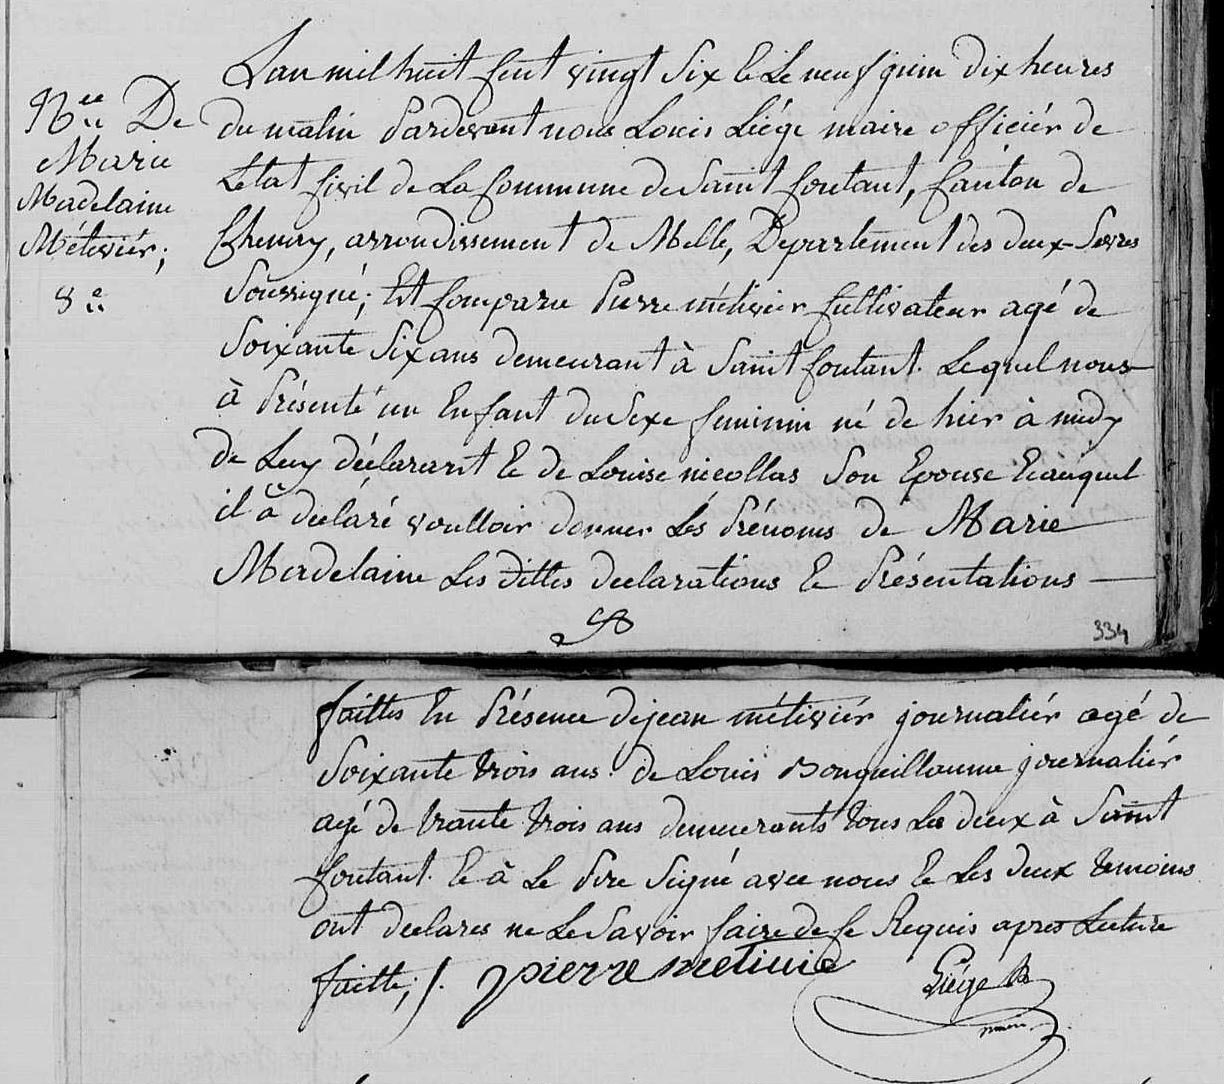 N.ce De
Marie
Madelaine
Métiviér;
8.e
L'an mil huit cent vingt Six le Le neuf juin dix heures
du matin Pardevant nous Louis Liége maire officiér de
Létat Civil de La Commune de Saint Coutant, Canton de
Chenay, arrondissement de Melle, Departement des deux-Sevres
Soussigné; Est Comparu Pierre métivier Cultivateur agé de
Soixante Six ans demeurant à Saint Coutant. Lequel nous
à Présenté un Enfant du Sexe feminin né de hier à midy
de Luy déclarant Et de Louise nicollas Son Epouse Et auquel
il à declaré voulloir donner Lés Prénoms de Marie
Madelaine Les dittes declarations Et Présentations
334
faittes En Présence de jean métiviér journaliér agé de
Soixante trois ans. de Louis Bonguillaume journaliér
agé de trante trois ans demeurants tous Les deux à Saint
Coutant. Et à Le Pére Signé avec nous Et Les deux temoins
ont declares ne Le Savoir faire de Ce Requis apres Lecture
faitte; /. pierre metivie
Liége
maire